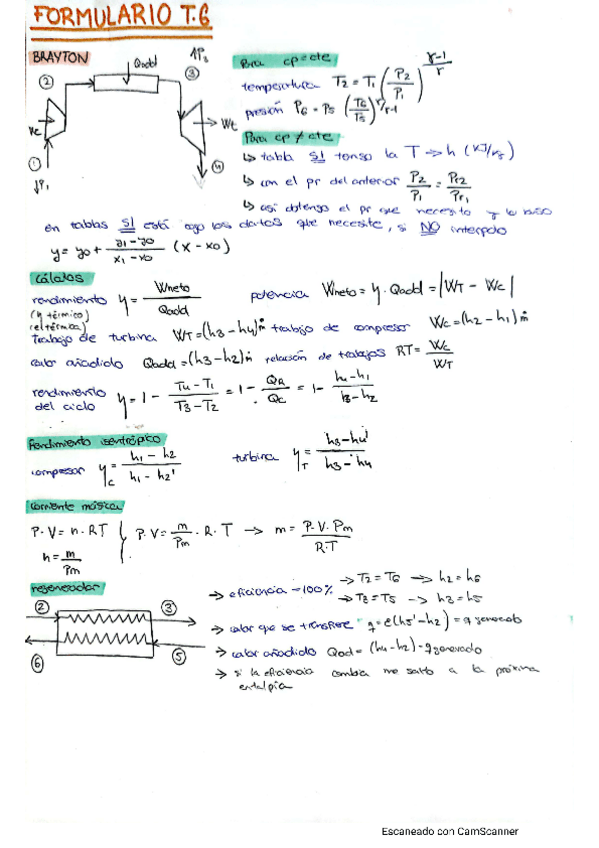 FORMULARIO T.6
BRAYTON
Qadd
↑P₃
② ③
Wc
Wt
①
↓P₁
④
Para cp=cte
temperatura T₂ = T₁ (P₂/P₁)^(γ-1/γ)
presión P₆ = P₅ (T₆/T₅)^(γ/γ-1)
Para cp ≠ cte
↳ tabla SI tengo la T → h (KJ/kg)
↳ con el pr del anterior P₂/P₁ = Pr₂/Pr₁
↳ así obtengo el pr que necesito y lo
en tablas SI está algo los datos que necesite, si NO interpolo
y = y₀ + (y₁ - y₀)/(x₁ - x₀) (x - x₀)
Cálculos
rendimiento η = Wneto/Qadd potencia Wneto = η · Qadd = |WT - Wc|
(η térmico)
(el térmica)
trabajo de turbina WT = (h₃ - h₄)ṁ trabajo de compresor Wc = (h₂ - h₁)ṁ
calor añadido Qadd = (h₃ - h₂)ṁ relación de trabajos RT = Wc/WT
rendimiento del ciclo η = 1 - (T₄ - T₁)/(T₃ - T₂) = 1 - QR/QC = 1 - (h₄ - h₁)/(h₃ - h₂)
Rendimiento isentrópico
compresor ηC = (h₁ - h₂)/(h₁ - h₂') turbina ηT = (h₃ - h₄')/(h₃ - h₄)
corriente másica
P·V = n·RT { P·V = m/Pm · R·T → m = P·V·Pm/R·T
n = m/Pm
regenerador
② ③
⑥ ⑤
→ eficiencia = 100% → T₂ = T₆ → h₂ = h₆
→ T₃ = T₅ → h₃ = h₅
→ calor que se transfiere q = e(h₅' - h₂) = q generado
→ calor añadido Qad = (h₄ - h₂) - q generado
→ si la eficiencia cambia me salto a la próxima
entalpía
Escaneado con CamScanner